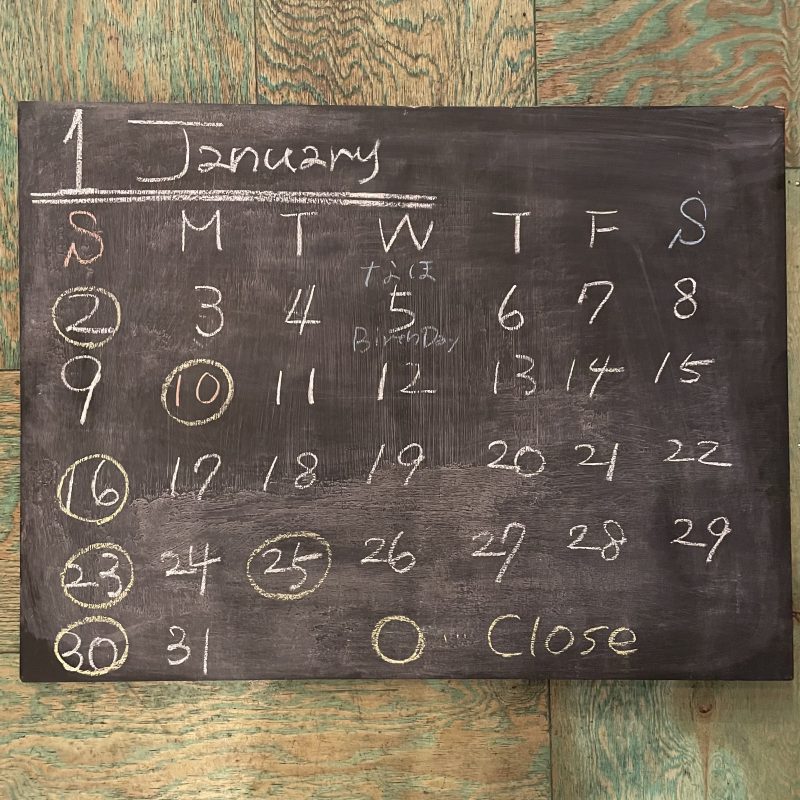 1 January
S M T W T F S
なほ
2 3 4 5 6 7 8
BirthDay
9 10 11 12 13 14 15
16 17 18 19 20 21 22
23 24 25 26 27 28 29
30 31 ○ ···· Close